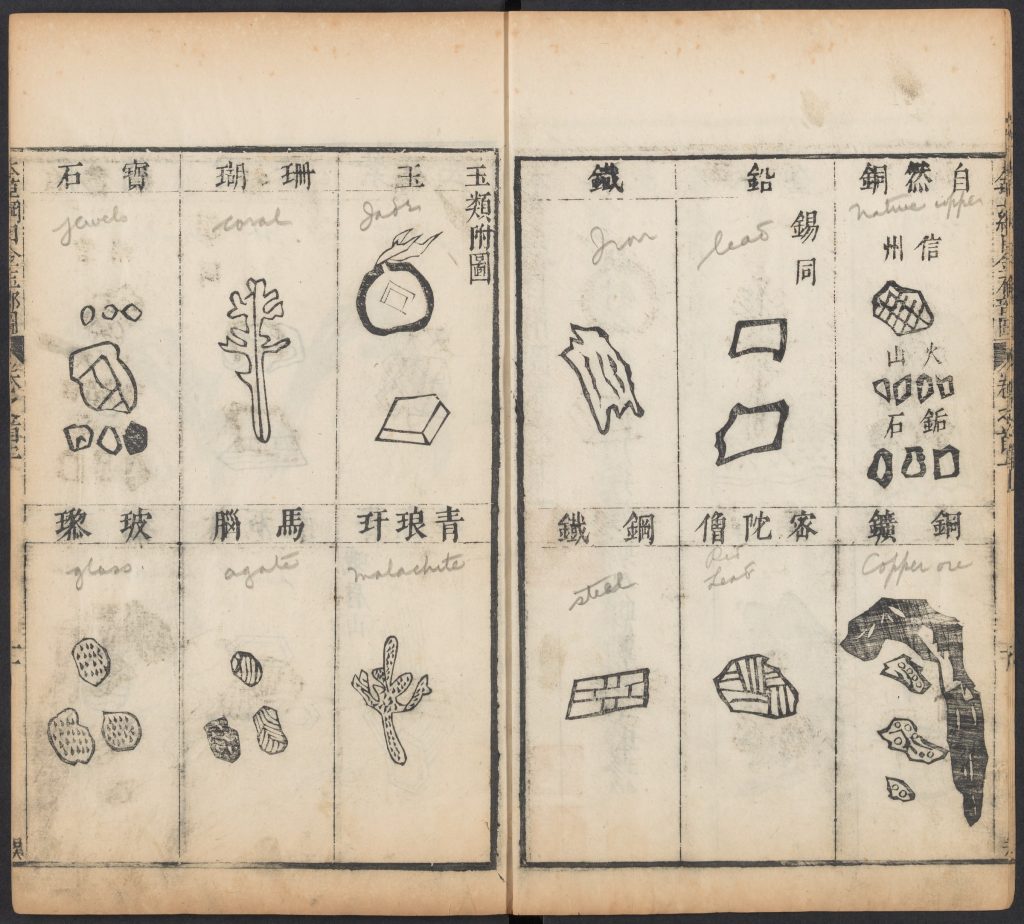 自然銅
native copper
信州
火山
鉐石
鉛
lead
錫同
鐵
Iron
銅鑛
Copper ore
密陀僧
Red
Lead
鋼鐵
steel
玉類附圖
玉
Jade
珊瑚
coral
寶石
jewels
青琅玕
malachite
馬腦
agate
玻瓈
glass